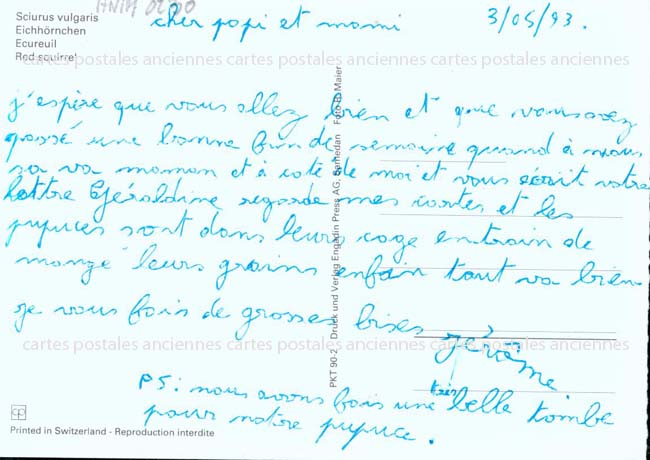 Sciurus vulgaris
Eichhörnchen
Ecureuil
Red squirrel
ANIM 02/00
cher popi et momi
3/05/93.
cartes postales anciennes cartes postales anciennes cartes postales anciennes
j'espère que vous allez bien et que vous avez
passé une bonne fin de semaine quand à nous
sa va moman et à coté de moi et vous écrit votre
lettre Géraldine regarde mes cartes et les
pupuces sont dans leurs cage entrain de
mangé leurs grains enfain tout va bien
je vous fais de grosses bises
cartes postales anciennes cartes postales anciennes cartes postales anciennes
jérôme
PS: nous avons fais une très belle tombe
pour notre pupuce.
PKT 90-2 Druck und Verlag Engadin Press AG, Samedan Foto B. Maier
Printed in Switzerland - Reproduction interdite